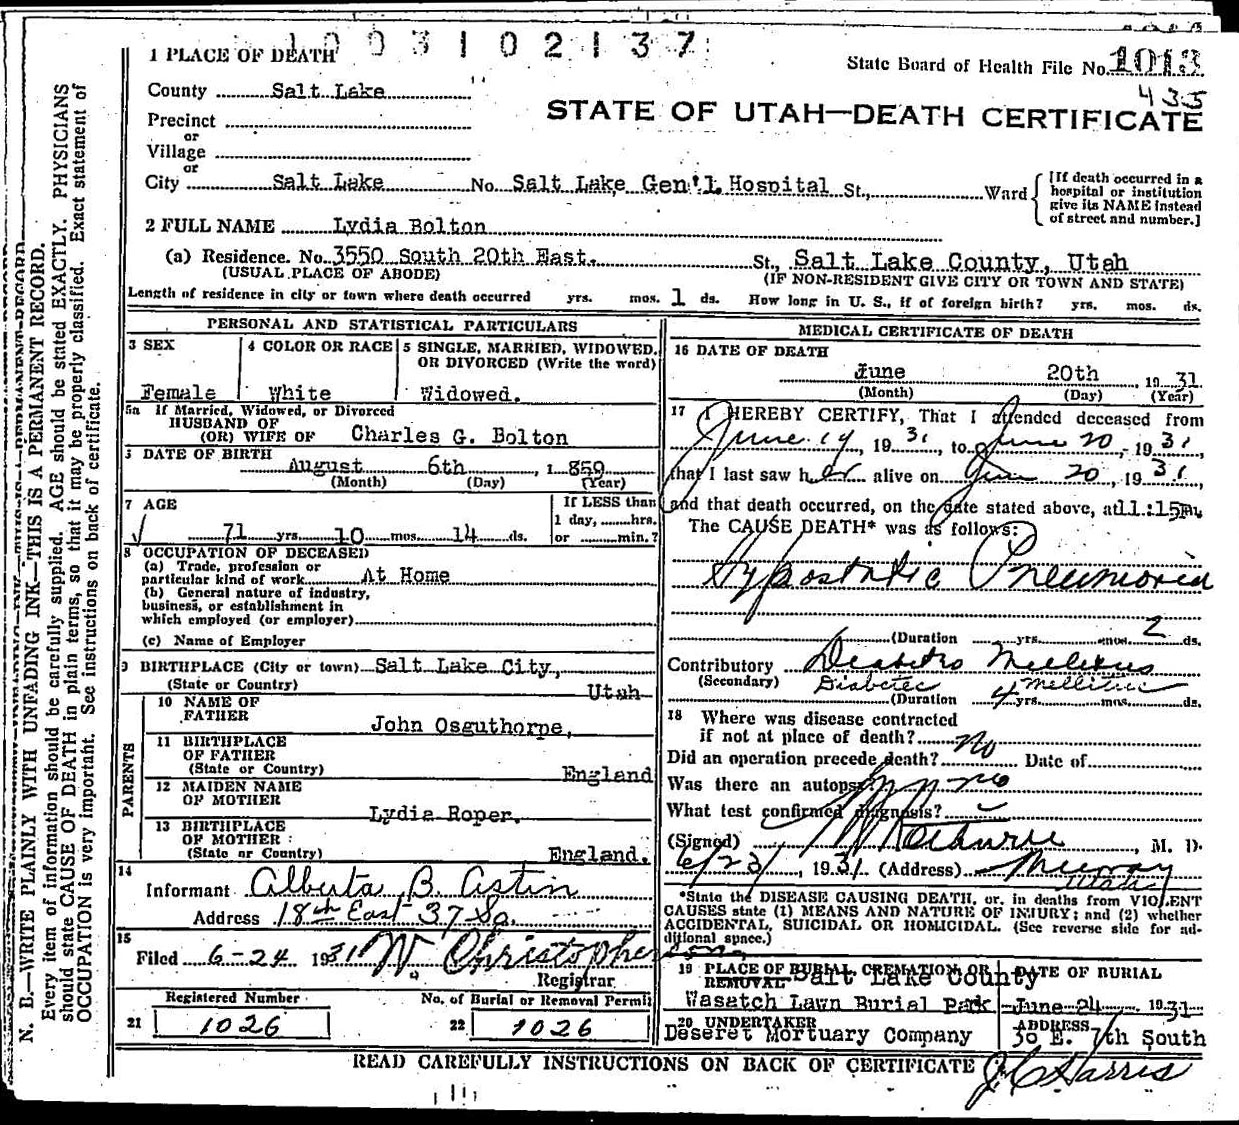 1003102137
1 PLACE OF DEATH
State Board of Health File No. 1013
435
County Salt Lake
STATE OF UTAH—DEATH CERTIFICATE
Precinct
or
Village
or
City Salt Lake No. Salt Lake Gen'l Hospital St., Ward
[If death occurred in a
hospital or institution
give its NAME instead
of street and number.]
2 FULL NAME Lydia Bolton
(a) Residence. No. 3550 South 20th East. St., Salt Lake County, Utah
(USUAL PLACE OF ABODE) (IF NON-RESIDENT GIVE CITY OR TOWN AND STATE)
Length of residence in city or town where death occurred yrs. mos. 1 ds. How long in U. S., if of foreign birth? yrs. mos. ds.
PERSONAL AND STATISTICAL PARTICULARS
3 SEX
Female
4 COLOR OR RACE
White
5 SINGLE, MARRIED, WIDOWED,
OR DIVORCED (Write the word)
Widowed.
5a If Married, Widowed, or Divorced
HUSBAND OF
(OR) WIFE OF Charles G. Bolton
DATE OF BIRTH
August 6th 1859
(Month) (Day) (Year)
7 AGE
71 yrs. 10 mos. 14 ds.
If LESS than
1 day, hrs.
or min.?
8 OCCUPATION OF DECEASED
(a) Trade, profession or
particular kind of work At Home
(b) General nature of industry,
business, or establishment in
which employed (or employer)
(c) Name of Employer
9 BIRTHPLACE (City or town) Salt Lake City,
(State or Country) Utah
PARENTS
10 NAME OF
FATHER
John Osguthorpe,
11 BIRTHPLACE
OF FATHER
(State or Country) England
12 MAIDEN NAME
OF MOTHER
Lydia Roper.
13 BIRTHPLACE
OF MOTHER
(State or Country) England.
14
Informant Alberta B. Astin
Address 18th East 37 So.
15
Filed 6-24 1931 W Christopherson,
Registrar
Registered Number
21 1026
No. of Burial or Removal Permit
22 1026
MEDICAL CERTIFICATE OF DEATH
16 DATE OF DEATH
June 20th, 1931
(Month) (Day) (Year)
17 I HEREBY CERTIFY, That I attended deceased from
June 19, 1931, to June 20, 1931
that I last saw her alive on June 20, 1931,
and that death occurred, on the date stated above, at 11:15
The CAUSE DEATH* was as follows:
Hypostatic Pneumonia
(Duration yrs. mos. 2 ds.
Contributory Diabetes Mellitus
(Secondary) Diabetes Mellitus
(Duration 4 yrs. mos. ds.
18 Where was disease contracted
if not at place of death? No
Did an operation precede death? Date of
Was there an autopsy? no
What test confirmed diagnosis?
(Signed) , M. D.
6/23/, 1931. (Address) Murray
Utah
*State the DISEASE CAUSING DEATH, or, in deaths from VIOLENT
CAUSES state (1) MEANS AND NATURE OF INJURY; and (2) whether
ACCIDENTAL, SUICIDAL OR HOMICIDAL. (See reverse side for ad-
ditional space.)
19 PLACE OF BURIAL, CREMATION OR
REMOVAL Salt Lake County
Wasatch Lawn Burial Park
DATE OF BURIAL
June 24 1931
20 UNDERTAKER
Deseret Mortuary Company
ADDRESS
36 E. 7th South
READ CAREFULLY INSTRUCTIONS ON BACK OF CERTIFICATE
J C Harris
N. B.—WRITE PLAINLY WITH UNFADING INK—THIS IS A PERMANENT RECORD.
Every item of information should be carefully supplied. AGE should be stated EXACTLY. PHYSICIANS
should state CAUSE OF DEATH in plain terms, so that it may be properly classified. Exact statement of
OCCUPATION is very important. See instructions on back of certificate.